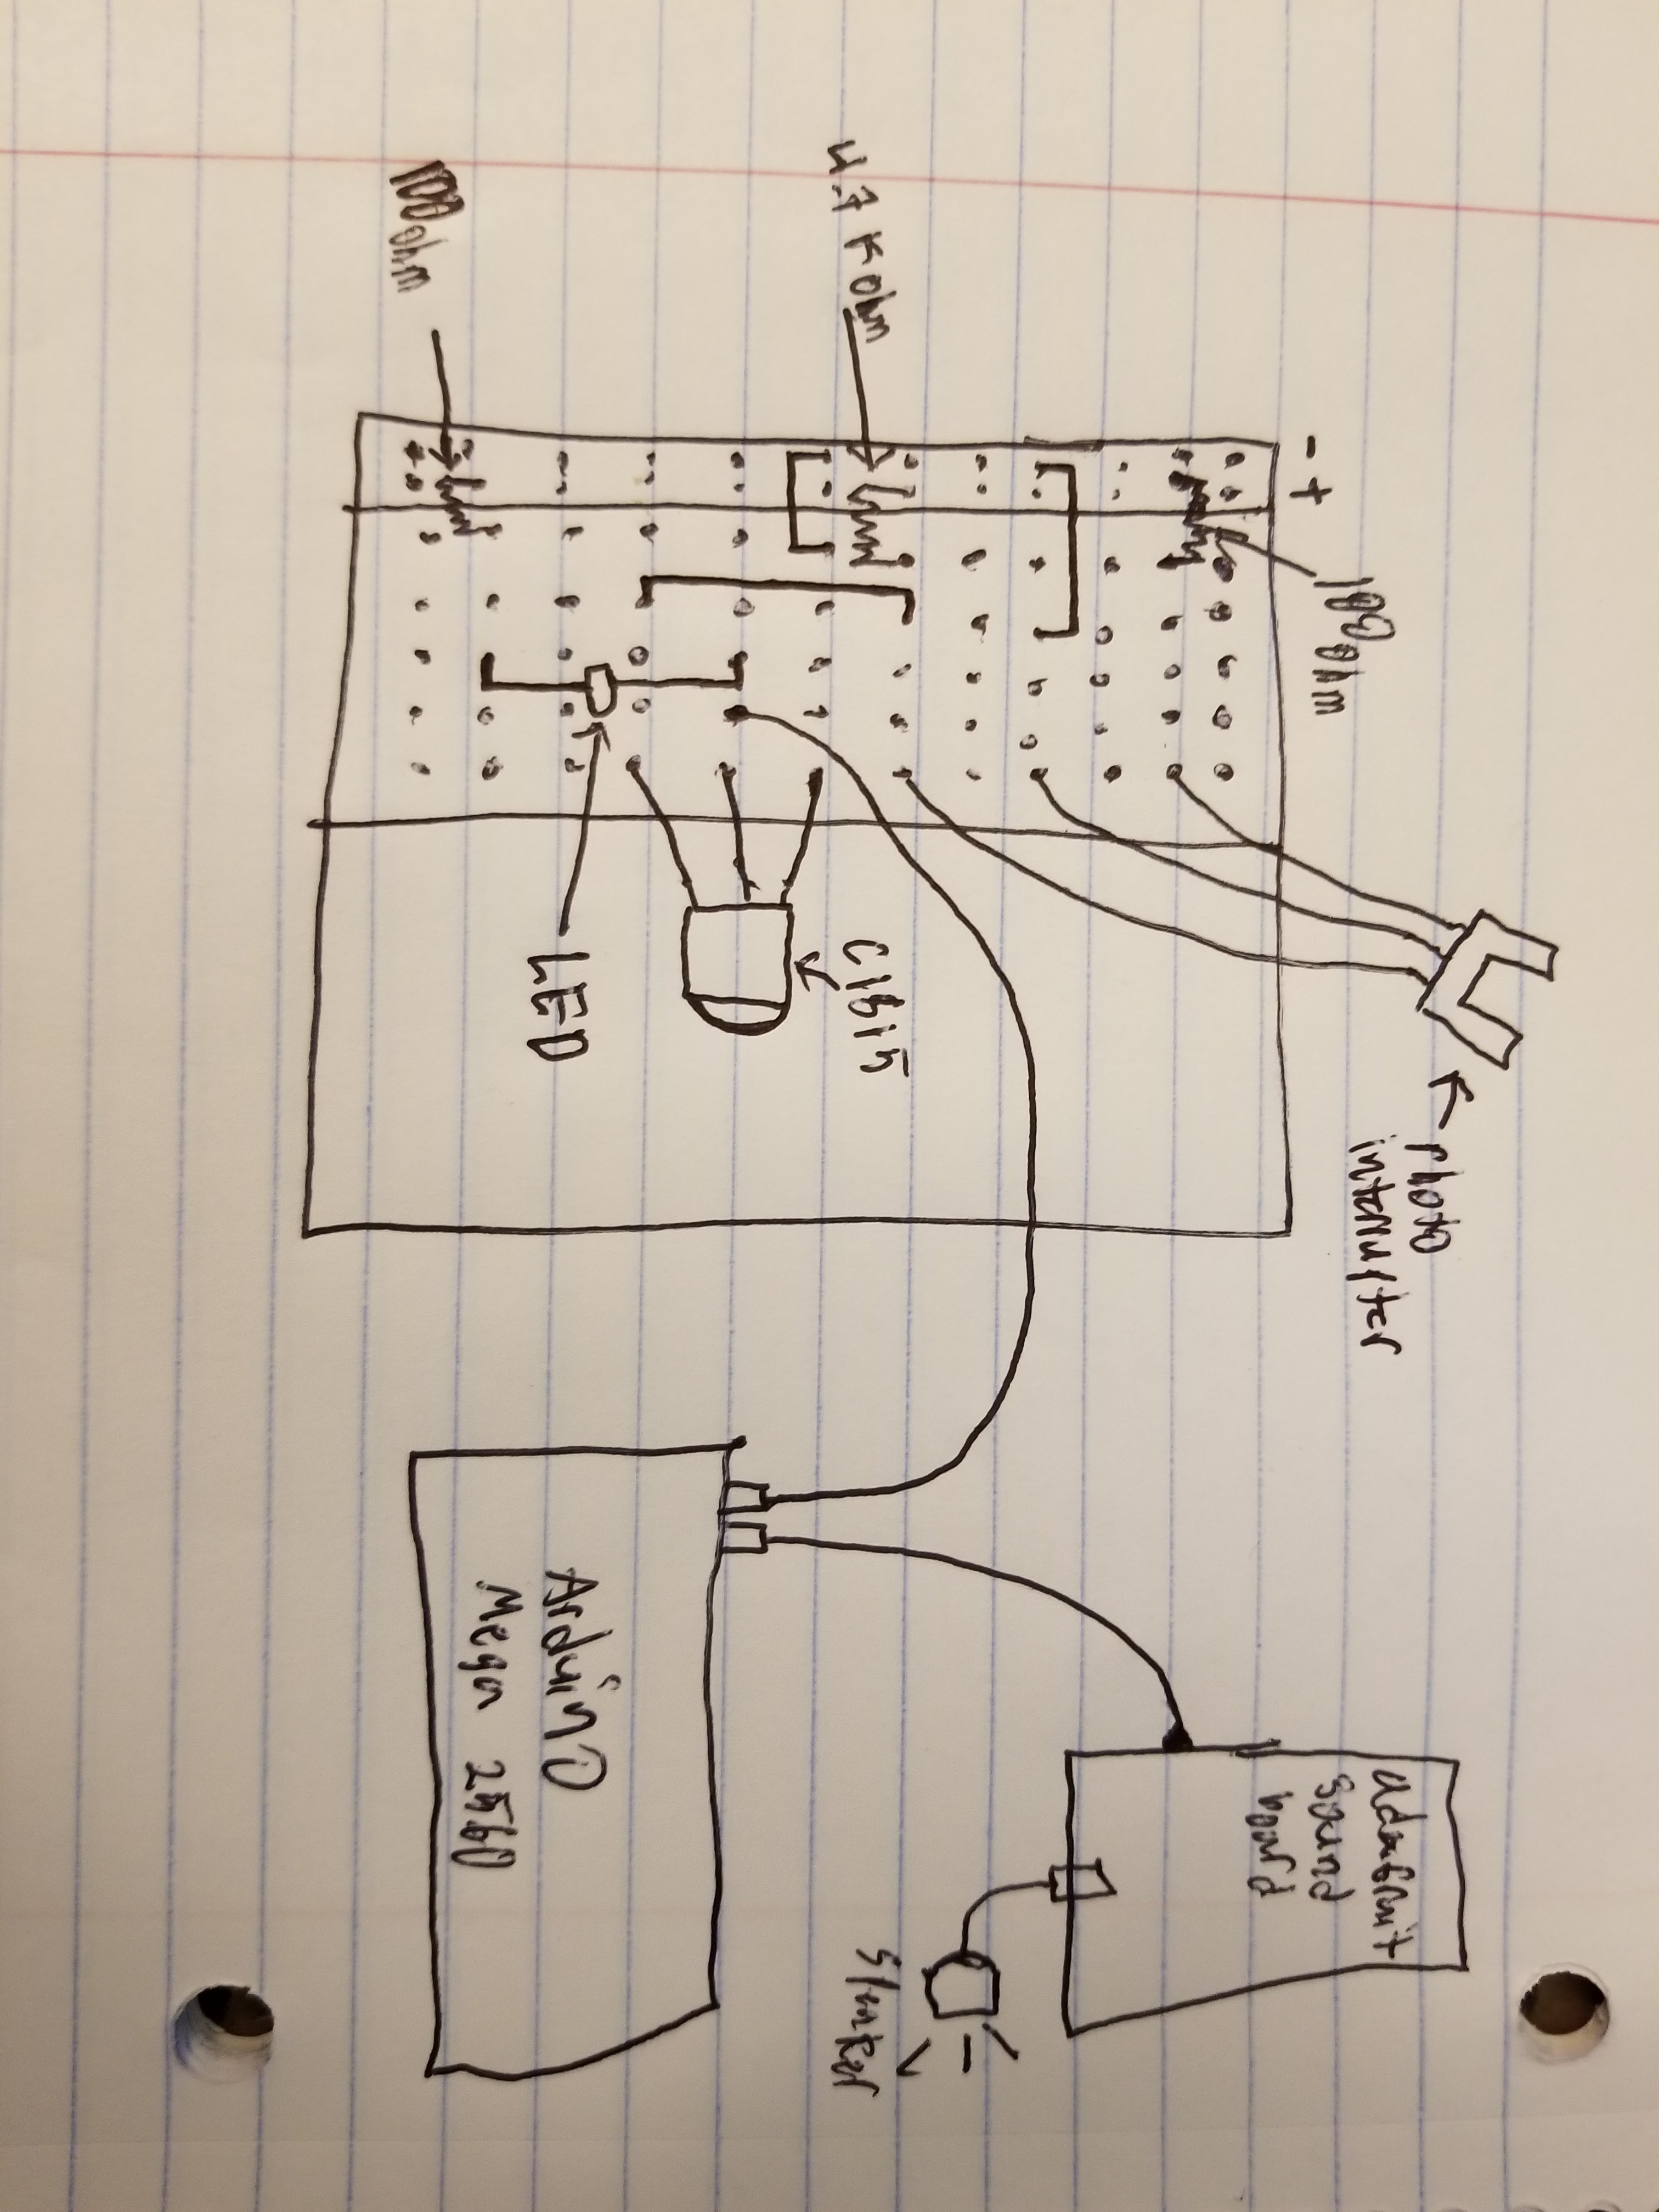 - +
100 ohm
4.7 k ohm
100 ohm
photo
interrupter
C1815
LED
Arduino
Mega 2560
adafruit
sound
board
speaker